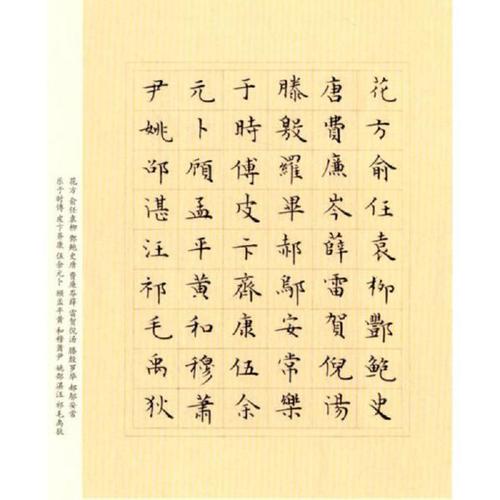 花方俞任袁柳酆鮑史
唐費廉岑薛雷賀倪湯
滕殷羅畢郝鄔安常樂
于時傅皮卞齊康伍余
元卜顧孟平黃和穆蕭
尹姚邵湛汪祁毛禹狄
花方 俞任袁柳 酆鲍史唐 费廉岑薛 雷贺倪汤 滕殷罗毕 郝邬安常
乐于时傅 皮卞齐康 伍余元卜 顾孟平黄 和穆萧尹 姚邵湛汪 祁毛禹狄